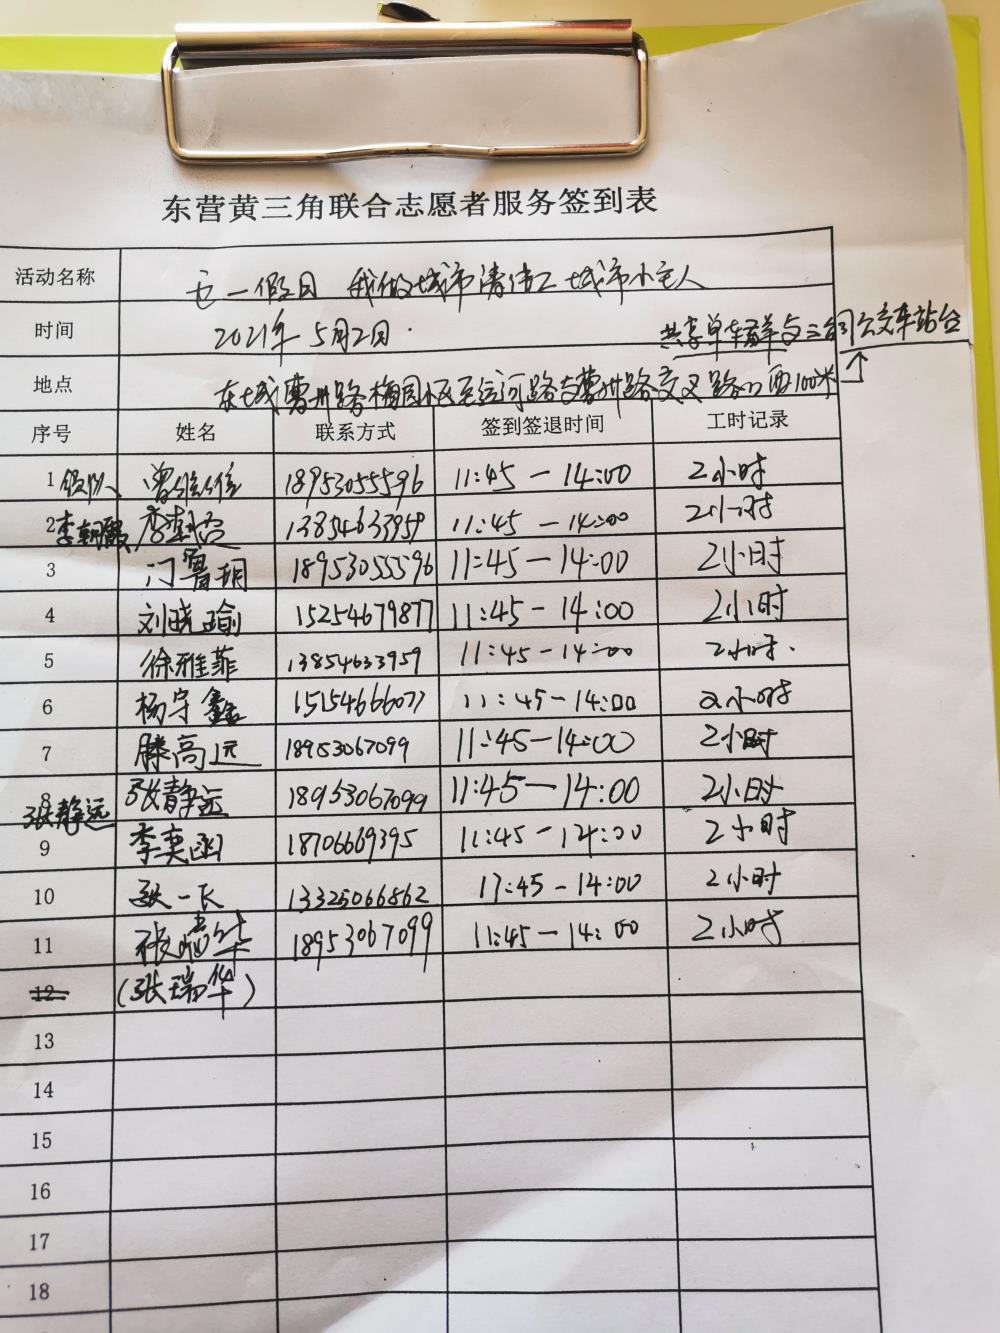 东营黄三角联合志愿者服务签到表
活动名称 五一假日 我做城市清洁工 城市小主人
时间 2021年5月2日.
共享单车 与 公交车站台
地点 东城 曹州路梅园小区至运河路与曹州路交叉路口西100米
序号 姓名 联系方式 签到签退时间 工时记录
1 领队 曾维维 18953055596 11:45-14:00 2小时
2 李朝熙 13854633959 11:45-14:00 2小时
3 门 玥 18953055596 11:45-14:00 2小时
4 刘晓瑜 15254679877 11:45-14:00 2小时
5 徐雅菲 13854633959 11:45-14:00 2小时.
6 杨宇鑫 15154666077 11:45-14:00 2小时
7 滕高远 18953067099 11:45-14:00 2小时
8 张静远 张静远 18953067099 11:45-14:00 2小时
9 李奕函 18706669395 11:45-14:00 2小时
10 一 13325066862 11:45-14:00 2小时
11 张瑞华 18953067099 11:45-14:00 2小时
12 (张瑞华)
13
14
15
16
17
18